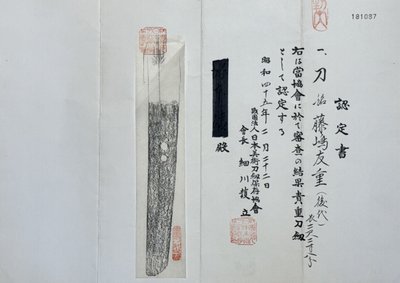 181037
認定書
一、刀 銘 藤嶋友重（後代）
長二尺二寸
右は當協會に於て審査の結果貴重刀剱
として認定する
昭和四十五年二月二十二日
財團法人日本美術刀剱保存協會
會長 細川護立
殿